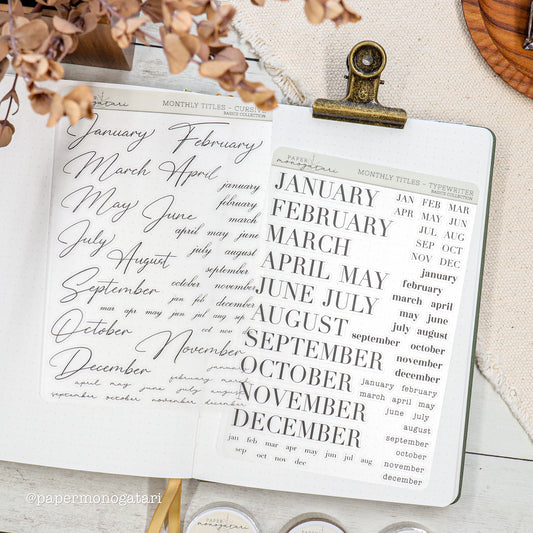 monogatari
MONTHLY TITLES - CURSIVE
BASICS COLLECTION
January February
March April
May June
July August
September
October November
December
january
february
march
april may june
july august
september
october november
jan feb december
mar apr may jun jul aug sep
oct nov
january
february march
april may june july august
september october november december
PAPER
monogatari
MONTHLY TITLES - TYPEWRITER
BASICS COLLECTION
JANUARY
FEBRUARY
MARCH
APRIL MAY
JUNE JULY
AUGUST
SEPTEMBER
OCTOBER
NOVEMBER
DECEMBER
JAN FEB MAR
APR MAY JUN
JUL AUG
SEP OCT
NOV DEC
january
february
march april
may june
july august
september october
november
december
january february
march april may
june july
august
september
october
november
december
jan feb mar apr may jun jul aug
sep oct nov dec
@papermonogatari
PAPER
monogatari